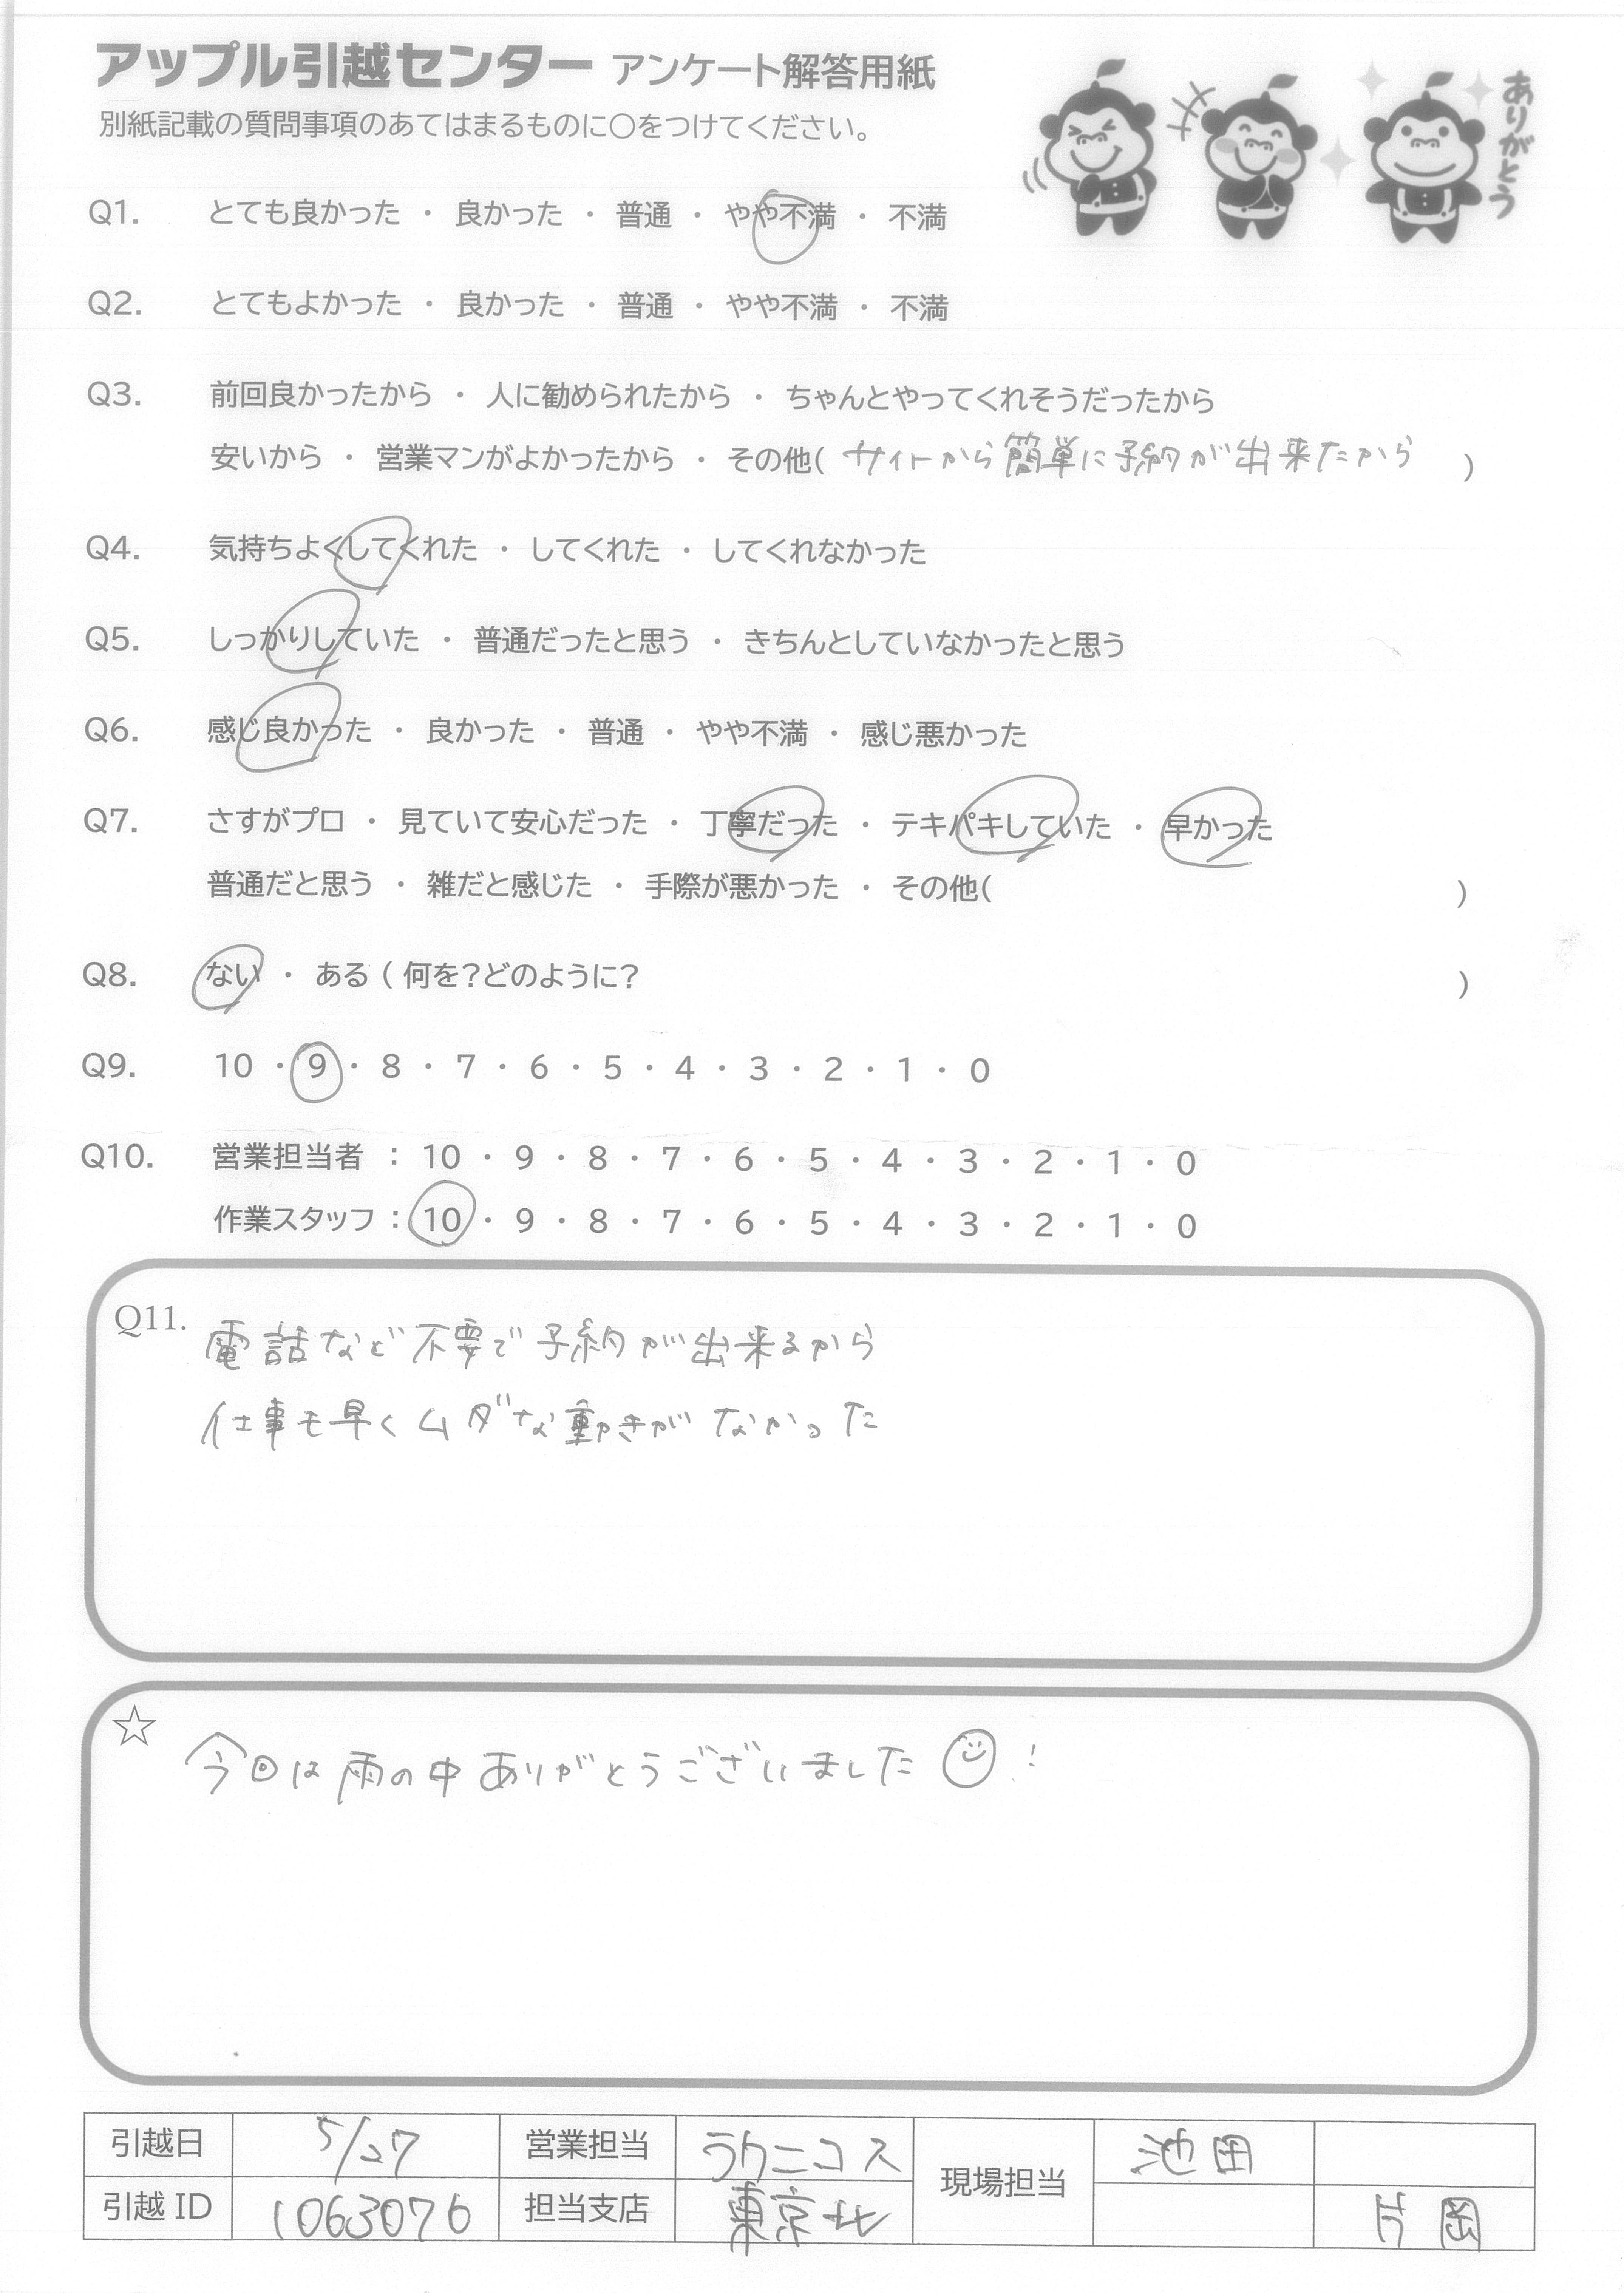 アップル引越センター アンケート解答用紙
別紙記載の質問事項のあてはまるものに〇をつけてください。
ありがとう
Q1. とても良かった ・ 良かった ・ 普通 ・ やや不満 ・ 不満
Q2. とてもよかった ・ 良かった ・ 普通 ・ やや不満 ・ 不満
Q3. 前回良かったから ・ 人に勧められたから ・ ちゃんとやってくれそうだったから
安いから ・ 営業マンがよかったから ・ その他( サイトから簡単に予約が出来たから )
Q4. 気持ちよくしてくれた ・ してくれた ・ してくれなかった
Q5. しっかりしていた ・ 普通だったと思う ・ きちんとしていなかったと思う
Q6. 感じ良かった ・ 良かった ・ 普通 ・ やや不満 ・ 感じ悪かった
Q7. さすがプロ ・ 見ていて安心だった ・ 丁寧だった ・ テキパキしていた ・ 早かった
普通だと思う ・ 雑だと感じた ・ 手際が悪かった ・ その他( )
Q8. ない ・ ある ( 何を?どのように? )
Q9. 10 ・ 9 ・ 8 ・ 7 ・ 6 ・ 5 ・ 4 ・ 3 ・ 2 ・ 1 ・ 0
Q10. 営業担当者 : 10 ・ 9 ・ 8 ・ 7 ・ 6 ・ 5 ・ 4 ・ 3 ・ 2 ・ 1 ・ 0
作業スタッフ : 10 ・ 9 ・ 8 ・ 7 ・ 6 ・ 5 ・ 4 ・ 3 ・ 2 ・ 1 ・ 0
Q11. 電話など不要で予約が出来るから
仕事も早くムダな動きがなかった
☆ 今回は雨の中ありがとうございました ☺ !
引越日 5/27 営業担当 ラクニコス 現場担当 池田
引越ID 1063076 担当支店 東京北 片岡